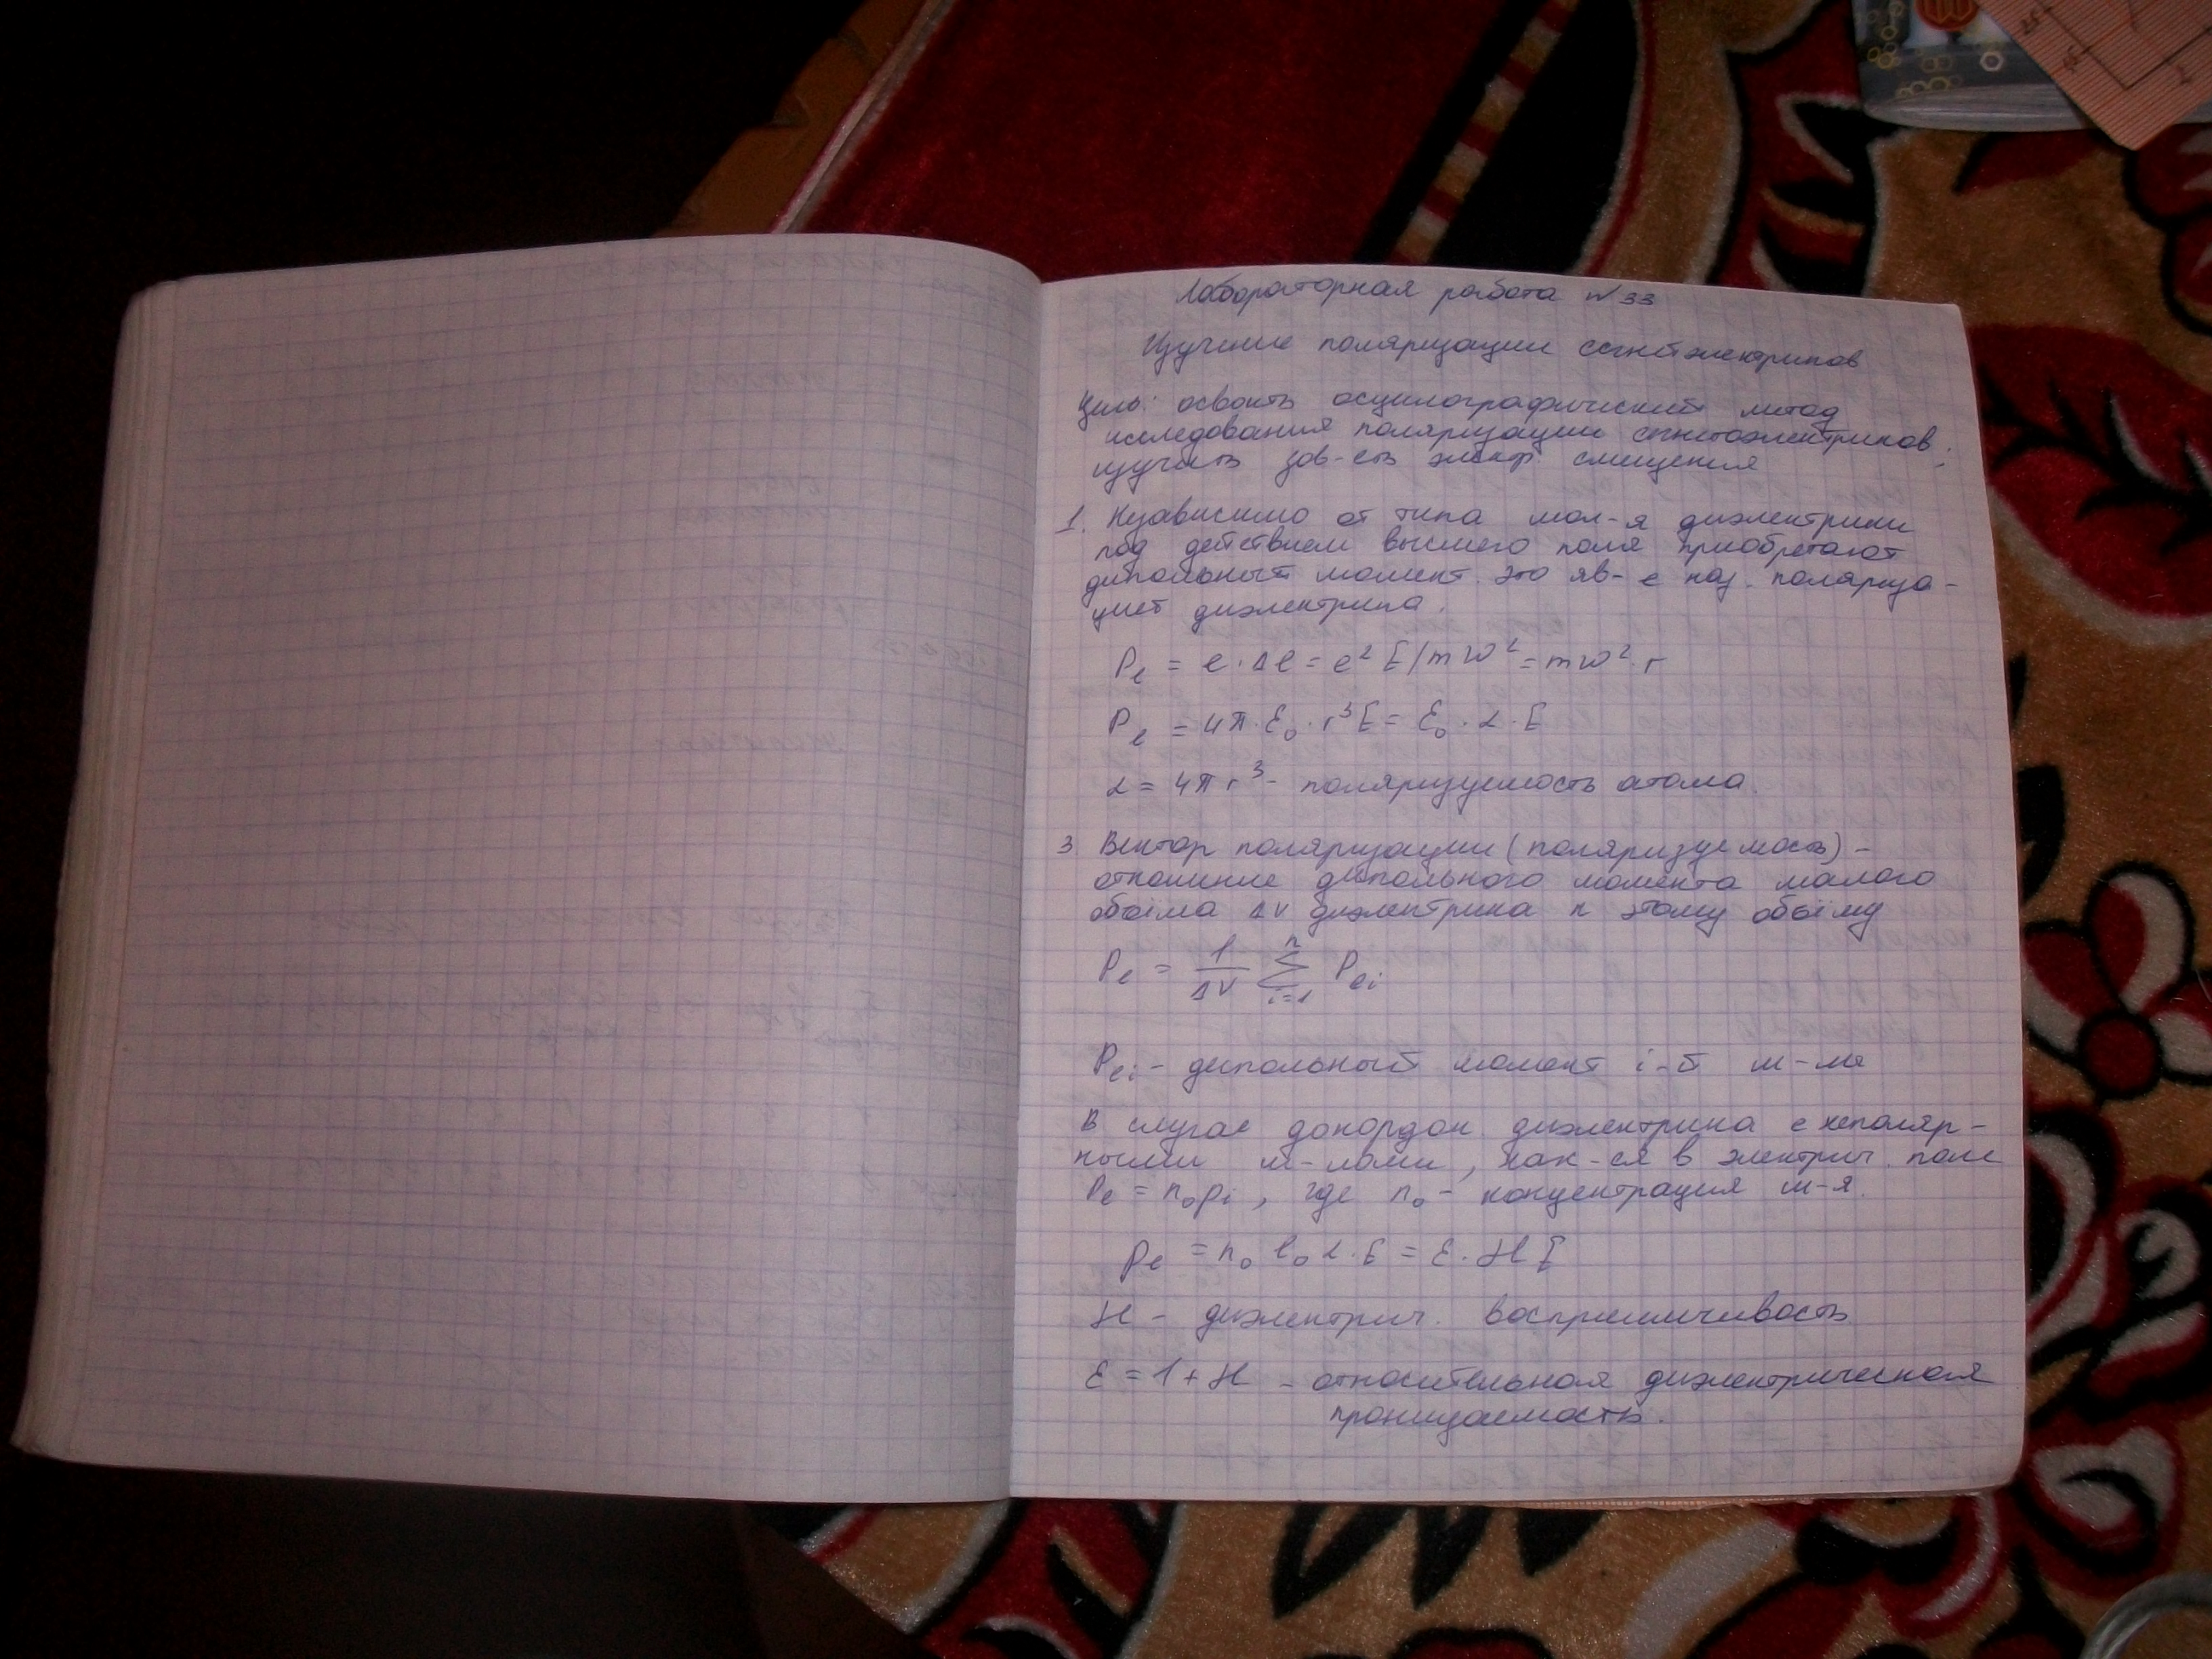 Лабораторная работа №33
Изучение поляризации сегнетоэлектриков
Цель: освоить осцилографический метод
исследования поляризации сегнетоэлектриков;
изучить зав-сть электр. смещения
1. Независимо от типа мол-я диэлектрики
под действием внешнего поля приобретают
дипольный момент. это яв-е наз. поляриза-
цией диэлектрика.
Pe = e·Δl = e² E/mw² = mw²·r
Pe = 4π·ε₀·r³E = ε₀·α·E
α = 4πr³ - поляризуемость атома.
3. Вектор поляризации (поляризуемость) -
отношение дипольного момента малого
объёма ΔV диэлектрика к этому объёму
Pe = 1/ΔV Σ Pei
n
i=1
Pei - дипольный момент i-й м-ла
В случае диэлектрика с неполяр-
ными м-лами, нах-ся в электрич. поле
Pe = n₀pi, где n₀ - концентрация м-я.
Pe = n₀ ε₀ α·E = ε·ℋE
ℋ - диэлектрич. восприимчивость
ε = 1+ℋ - относительная диэлектрическая
проницаемость.